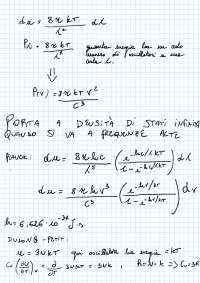 du = 8πkT / λ² dλ
P(λ) = 8πkT / λ² quante energie
⇓
P(ν) = 8πkT ν² / c³
PORTA A DENSITÀ DI STATI INFINITA
QUANDO SI VA A FREQUENZE ALTE
PLANCK: du = 8πhc / λ⁵ ( e^(-hc/λkT) / 1 - e^(-hc/λkT) ) dλ
du = 8πhν³ / c³ ( e^(-hν/kT) / 1 - e^(-hν/kT) ) dν
h = 6,626 · 10⁻³⁴ J·s
DULONG-PETIT:
u = 3NkT ogni oscillatore ha energia = kT
Cv (∂U/∂T)v = ∂/∂T 3NkT = 3Nk , R = N·k => Cv = 3R